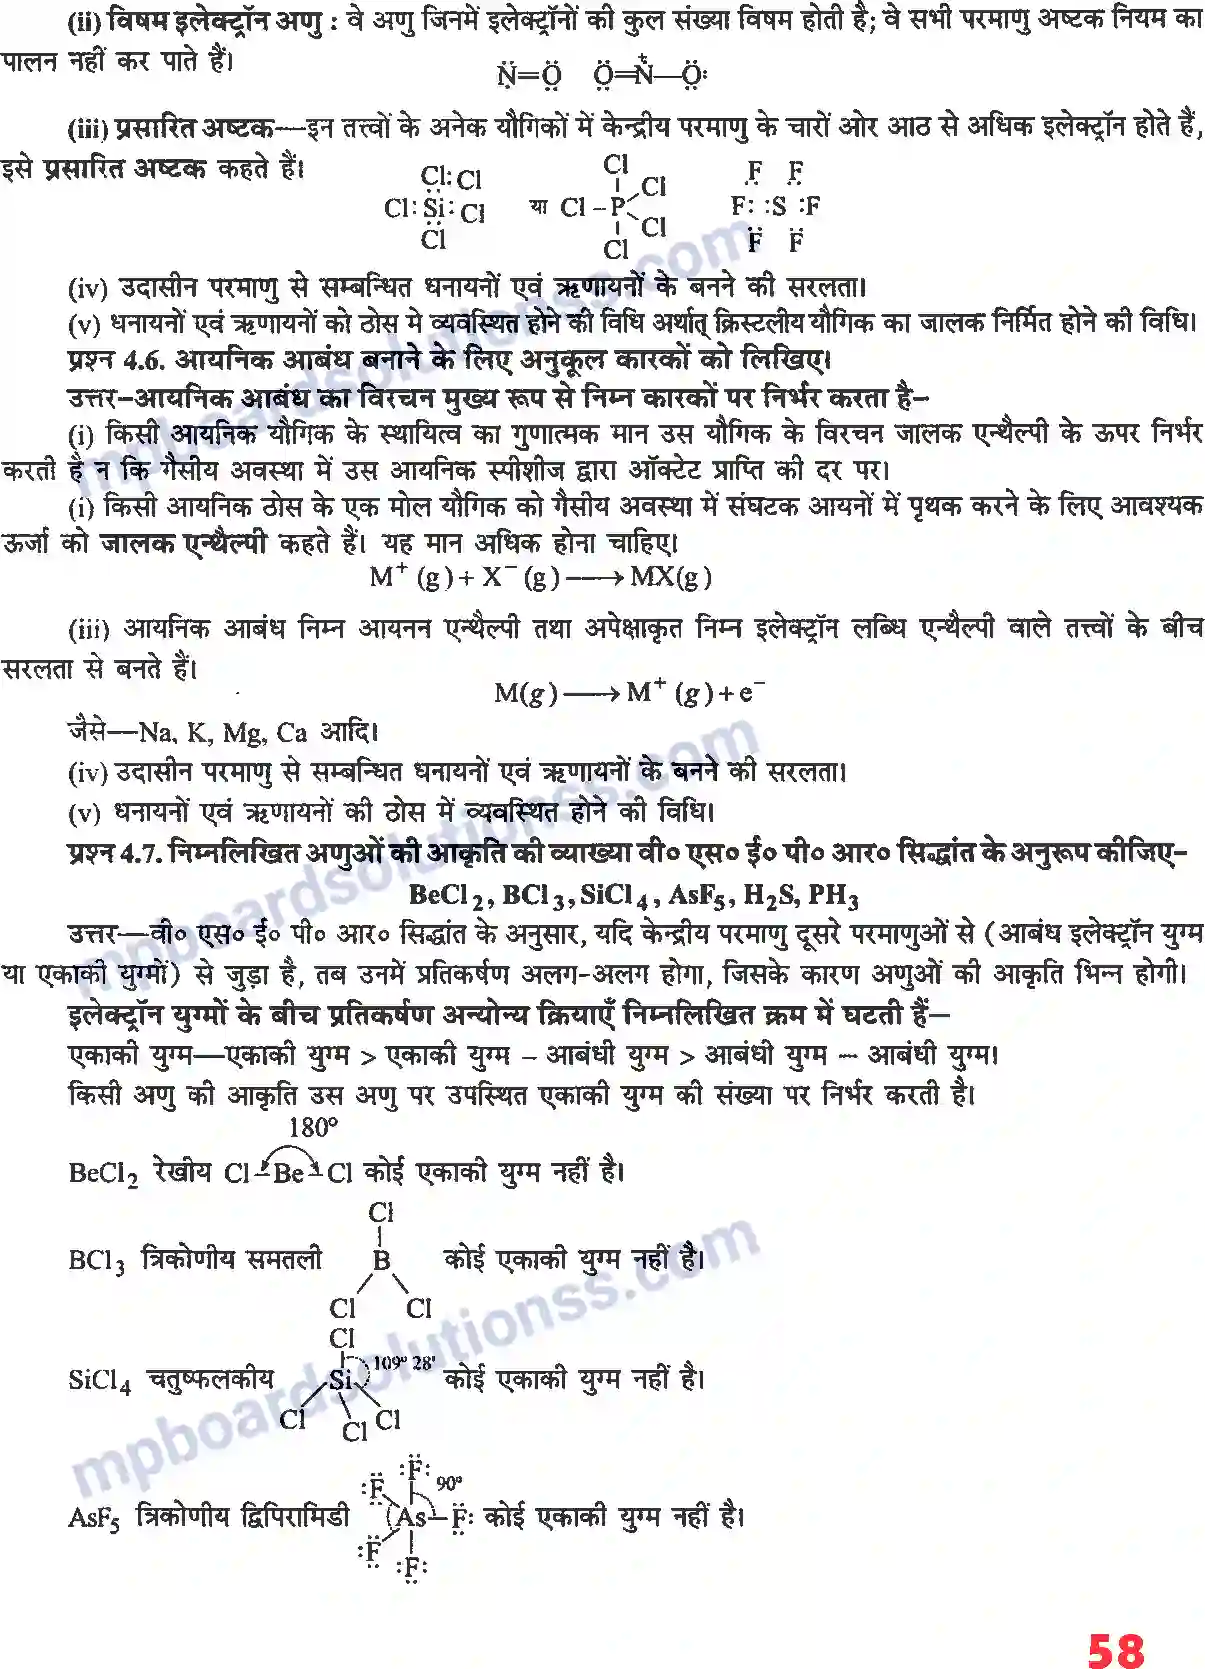 (ii) विषम इलेक्ट्रॉन अणु : वे अणु जिनमें इलेक्ट्रॉनों की कुल संख्या विषम होती है; वे सभी परमाणु अष्टक नियम का
पालन नहीं कर पाते हैं।
N=O O=N⁺—O:
(iii) प्रसारित अष्टक—इन तत्त्वों के अनेक यौगिकों में केन्द्रीय परमाणु के चारों ओर आठ से अधिक इलेक्ट्रॉन होते हैं,
इसे प्रसारित अष्टक कहते हैं।
Cl: Cl Cl F F
Cl: Si: Cl या Cl – P Cl F: :S :F
Cl Cl Cl F F
(iv) उदासीन परमाणु से सम्बन्धित धनायनों एवं ऋणायनों के बनने की सरलता।
(v) धनायनों एवं ऋणायनों को ठोस मे व्यवस्थित होने की विधि अर्थात् क्रिस्टलीय यौगिक का जालक निर्मित होने की विधि।
प्रश्न 4.6. आयनिक आबंध बनाने के लिए अनुकूल कारकों को लिखिए।
उत्तर–आयनिक आबंध का विरचन मुख्य रूप से निम्न कारकों पर निर्भर करता है–
(i) किसी आयनिक यौगिक के स्थायित्व का गुणात्मक मान उस यौगिक के विरचन जालक एन्थैल्पी के ऊपर निर्भर
करती है न कि गैसीय अवस्था में उस आयनिक स्पीशीज द्वारा ऑक्टेट प्राप्ति की दर पर।
(i) किसी आयनिक ठोस के एक मोल यौगिक को गैसीय अवस्था में संघटक आयनों में पृथक करने के लिए आवश्यक
ऊर्जा को जालक एन्थैल्पी कहते हैं। यह मान अधिक होना चाहिए।
M⁺ (g) + X⁻ (g) ⟶ MX(g)
(iii) आयनिक आबंध निम्न आयनन एन्थैल्पी तथा अपेक्षाकृत निम्न इलेक्ट्रॉन लब्धि एन्थैल्पी वाले तत्त्वों के बीच
सरलता से बनते हैं।
M(g) ⟶ M⁺ (g) + e⁻
जैसे—Na, K, Mg, Ca आदि।
(iv) उदासीन परमाणु से सम्बन्धित धनायनों एवं ऋणायनों के बनने की सरलता।
(v) धनायनों एवं ऋणायनों की ठोस में व्यवस्थित होने की विधि।
प्रश्न 4.7. निम्नलिखित अणुओं की आकृति की व्याख्या वी० एस० ई० पी० आर० सिद्धांत के अनुरूप कीजिए–
BeCl₂, BCl₃, SiCl₄, AsF₅, H₂S, PH₃
उत्तर—वी० एस० ई० पी० आर० सिद्धांत के अनुसार, यदि केन्द्रीय परमाणु दूसरे परमाणुओं से (आबंध इलेक्ट्रॉन युग्म
या एकाकी युग्मों) से जुड़ा है, तब उनमें प्रतिकर्षण अलग-अलग होगा, जिसके कारण अणुओं की आकृति भिन्न होगी।
इलेक्ट्रॉन युग्मों के बीच प्रतिकर्षण अन्योन्य क्रियाएँ निम्नलिखित क्रम में घटती हैं–
एकाकी युग्म—एकाकी युग्म > एकाकी युग्म – आबंधी युग्म > आबंधी युग्म – आबंधी युग्म।
किसी अणु की आकृति उस अणु पर उपस्थित एकाकी युग्म की संख्या पर निर्भर करती है।
180°
BeCl₂ रेखीय Cl–Be–Cl कोई एकाकी युग्म नहीं है।
Cl
BCl₃ त्रिकोणीय समतली B कोई एकाकी युग्म नहीं है।
Cl Cl
Cl
109° 28'
SiCl₄ चतुष्फलकीय Si कोई एकाकी युग्म नहीं है।
Cl Cl Cl
:F :F: 90°
AsF₅ त्रिकोणीय द्विपिरामिडी (As–F: कोई एकाकी युग्म नहीं है।
:F :F:
58
mpboardsolutionss.com
mpboardsolutionss.com
mpboardsolutionss.com